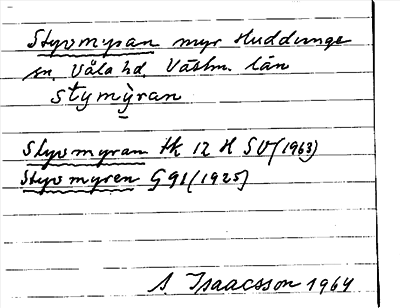 Styvmyran myr Huddunge
sn. Våla hd. Västm. län
stymỳran
Styvmyran tk 12 H SV (1963)
Styvmyren G 91 (1925)
S Isaacsson 1964